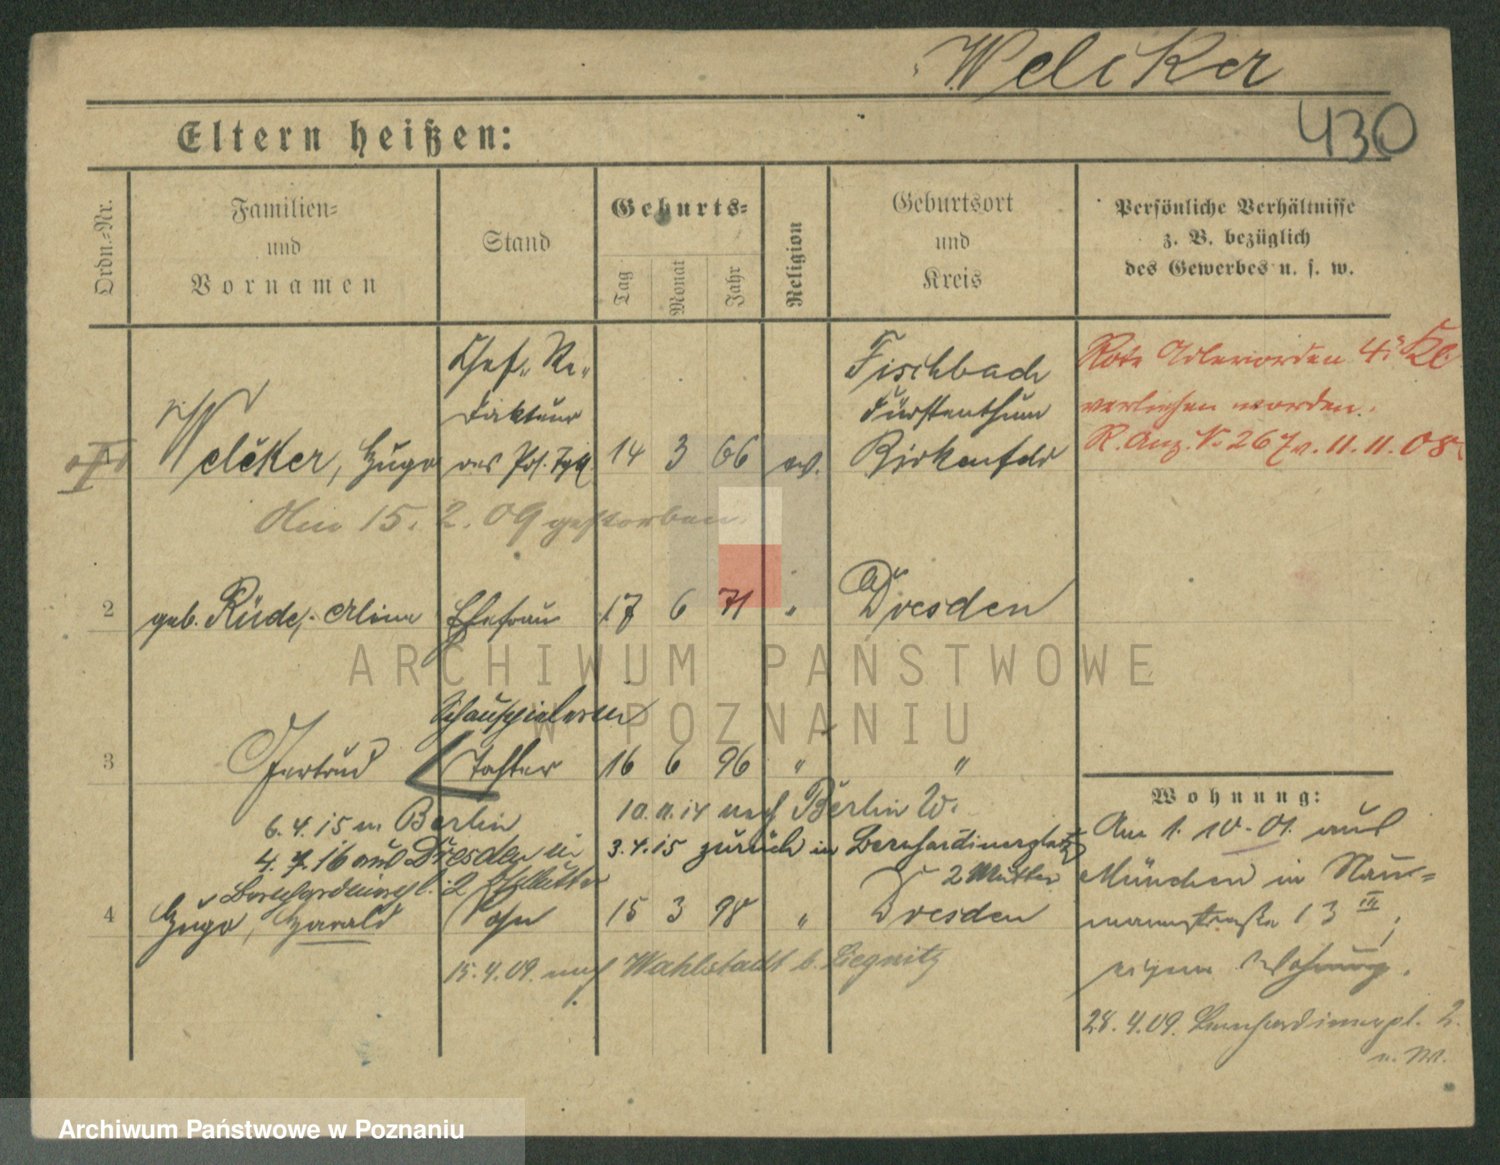 Welcker
430
Eltern heißen:
Ordn.-Nr.
Familien-
und
Vornamen
Stand
Geburts-
Tag
Monat
Jahr
Religion
Geburtsort
und
Kreis
Persönliche Verhältnisse
z. B. bezüglich
des Gewerbes u. s. w.
Welcker, Hugo
Chef-Re-
dakteur
des Pos. Tgbl.
14 3 66 ev.
Fischbach
Fürstenthum
Birkenfeld
Rote Adlerorden 4. Kl.
verliehen worden.
R. Anz. N. 267 v. 11.11.08.
Am 15. 2. 09 gestorben.
2 geb. Rüde, Alina Ehefrau 17 6 71 " Dresden
Schauspielerin
3 Gertrud Tochter 16 6 96 " "
6.4.15 n. Berlin
10.11.14 nach Berlin W.
4. 7. 16 aus Dresden in
3.4.15 zurück in Bernhardinerplatz
Bernhardinerpl. 2 Mutter
2 Mutter
4 Hugo, Harald Sohn 15 3 98 " Dresden
15.4.09. nach Wahlstadt b. Liegnitz
Wohnung:
Am 1. 10. 01. aus
München in Nau-
mannstraße 13 III,
eigene Wohnung.
28. 4. 09. Bernhardinerpl. 2.
ARCHIWUM PAŃSTWOWE
W POZNANIU
Archiwum Państwowe w Poznaniu